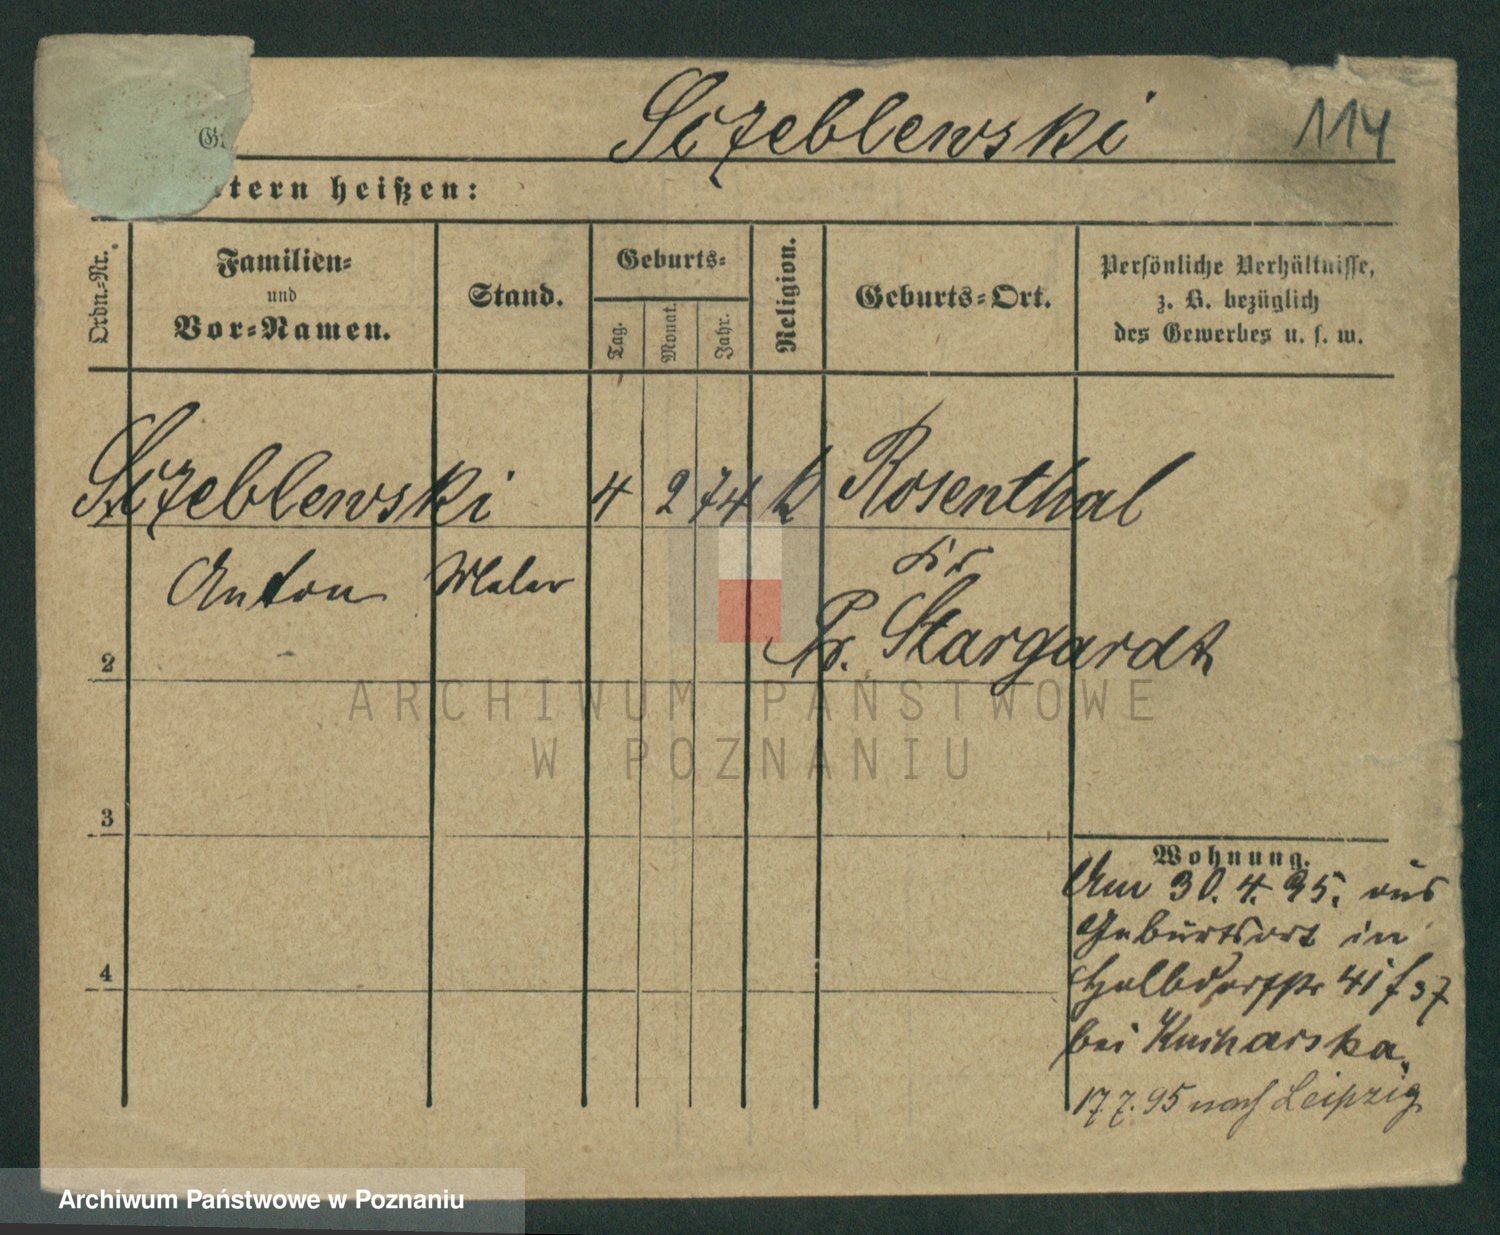 Sczeblewski 114
tern heißen:
Ordn.-Nr.
Familien-
und
Vor-Namen.
Stand.
Geburts-
Tag.
Monat.
Jahr.
Religion.
Geburts-Ort.
Persönliche Verhältnisse,
z. B. bezüglich
des Gewerbes u. s. w.
Sczeblewski 4 2 74 k Rosenthal
Anton Maler Kr
Pr. Stargardt
2
ARCHIWUM PAŃSTWOWE
W POZNANIU
3
4
Wohnung.
Am 30. 4. 95. aus
Geburtsort in
Halbdorfstr 41
bei Kucharska.
17. 7. 95 nach Leipzig
Archiwum Państwowe w Poznaniu